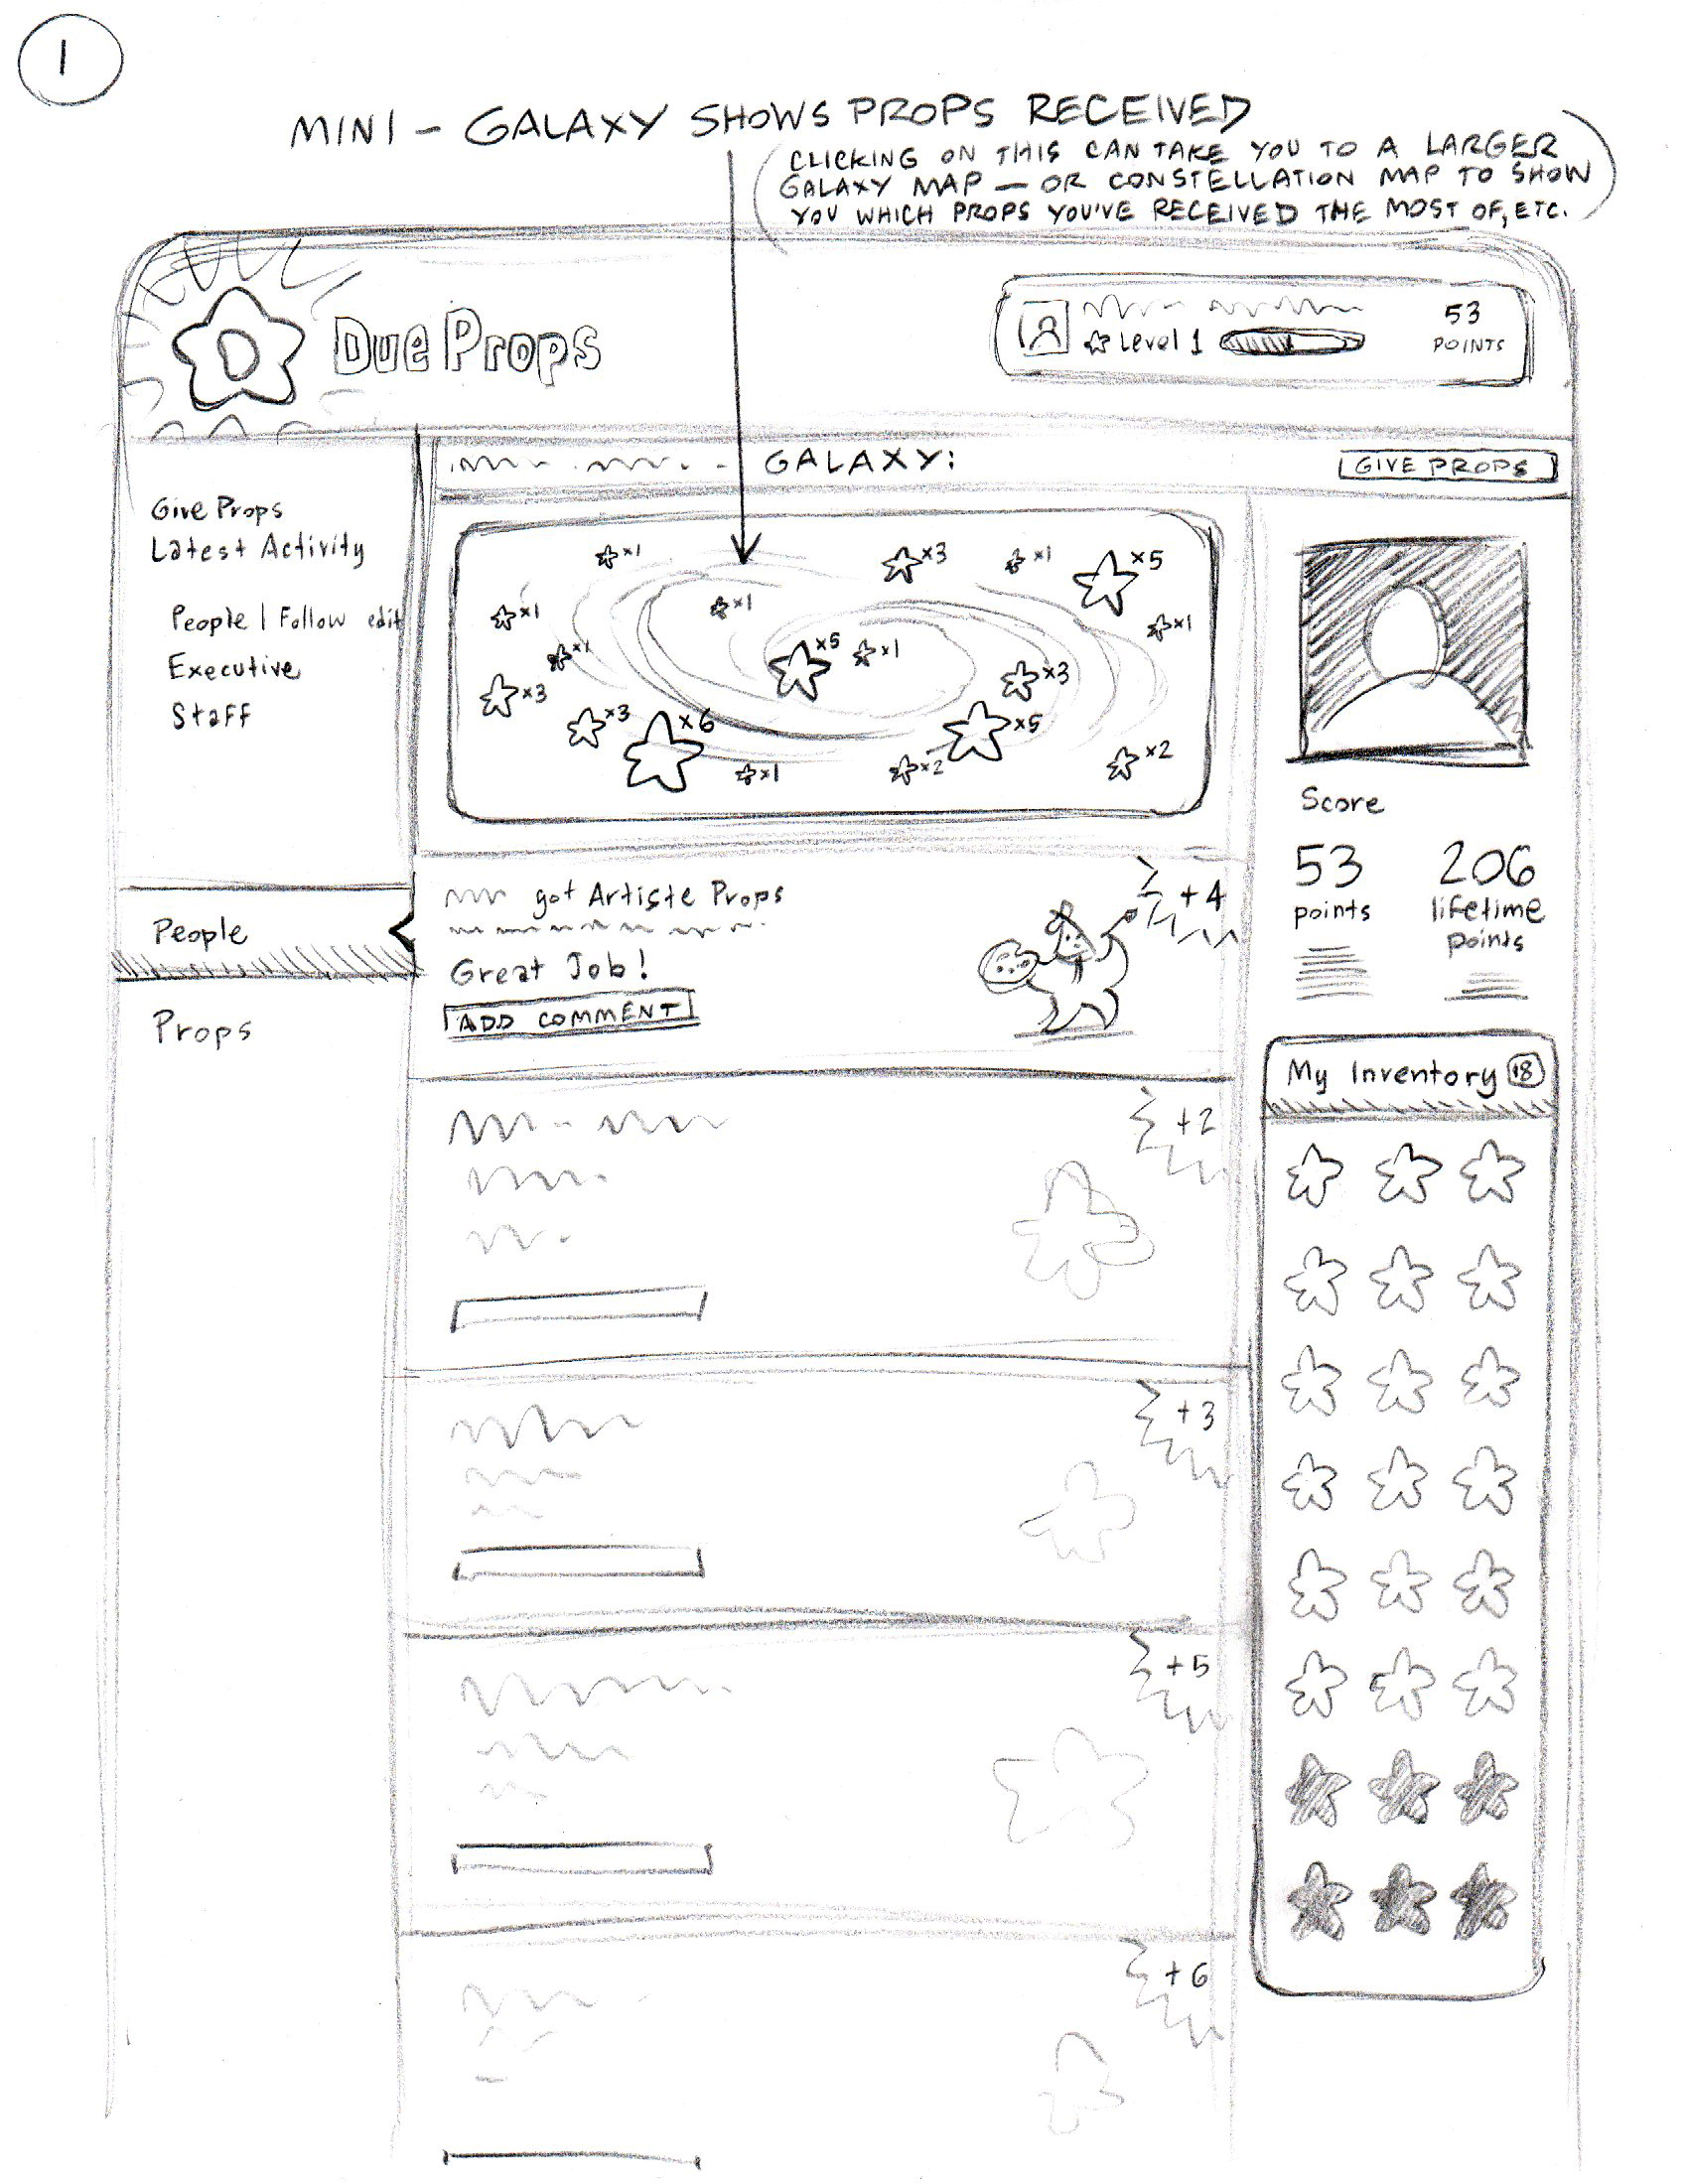 1
MINI - GALAXY SHOWS PROPS RECEIVED
(CLICKING ON THIS CAN TAKE YOU TO A LARGER
GALAXY MAP — OR CONSTELLATION MAP TO SHOW
YOU WHICH PROPS YOU'VE RECEIVED THE MOST OF, ETC.)
D Due Props
53
Level 1
POINTS
GALAXY:
GIVE PROPS
Give Props
Latest Activity
People I Follow edit
Executive
Staff
People
Props
x1
x3
x1
x5
x1
x1
x1
x1
x5
x1
x3
x3
x3
x6
x5
x1
x2
x2
got Artiste Props
+4
Great Job!
ADD COMMENT
+2
+3
+5
+6
Score
53
points
206
lifetime
points
My Inventory 18